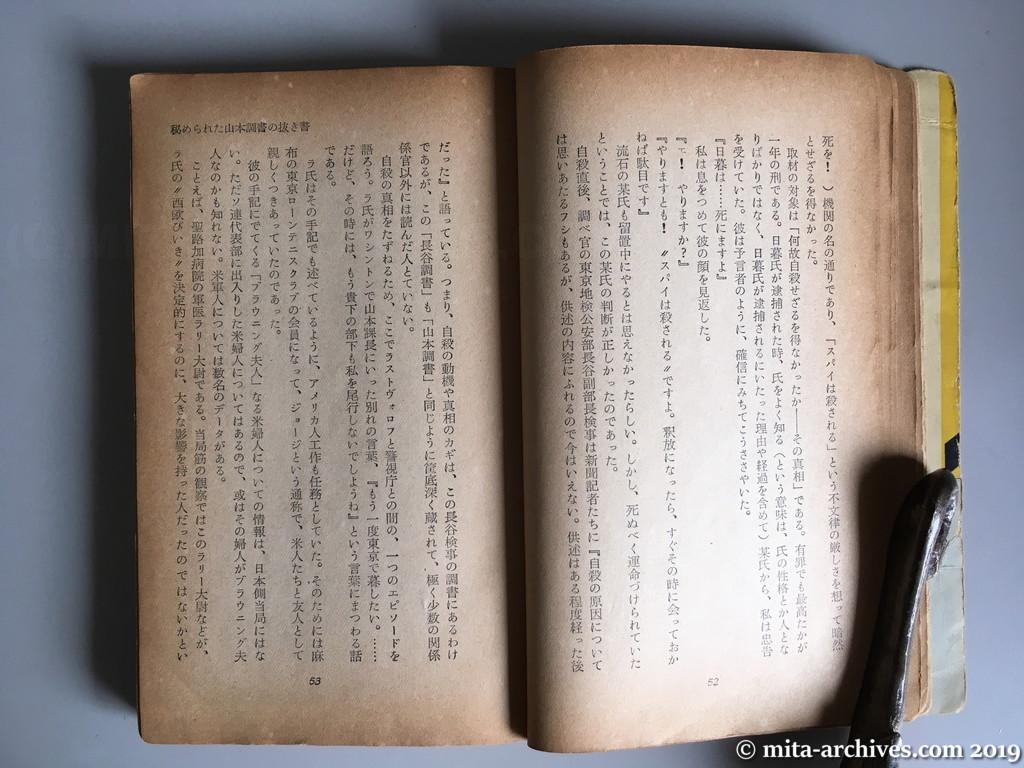 死を！　）機関の名の通りであり、「スパイは殺される」という不文律の厳しさを想って暗然
とせざるを得なかった。
　取材の対象は「何故自殺せざるを得なかったか――その真相」である。有罪でも最高たかが
一年の刑である。日暮氏が逮捕された時、氏をよく知る（という意味は、氏の性格とか人とな
りばかりではなく、日暮氏が逮捕されるにいたった理由や経過を含めて）某氏から、私は忠告
を受けていた。彼は予言者のように、確信にみちてこうささやいた。
『日暮は……死にますよ』
　私は息をつめて彼の顔を見返した。
『エ！　やりますか？』
『やりますとも！　〝スパイは殺される〟ですよ。釈放になったら、すぐその時に会っておか
ねば駄目です』
　流石の某氏も留置中にやるとは思えなかったらしい。しかし、死ぬべく運命づけられていた
ということでは、この某氏の判断が正しかったのであった。
　自殺直後、調べ官の東京地検公安部長谷副部長検事は新聞記者たちに『自殺の原因について
は思いあたるフシもあるが、供述の内容にふれるので今はいえない。供述はある程度経った後
52
秘められた山本調書の抜き書
だった』と語っている。つまり、自殺の動機や真相のカギは、この長谷検事の調書にあるわけ
であるが、この「長谷調書」も「山本調書」と同じように筐底深く蔵されて、極く少数の関係
係官以外には読んだ人とていない。
　自殺の真相をたずねるため、ここでラストヴォロフと警視庁との間の、一つのエピソードを
語ろう。ラ氏がワシントンで山本課長にいった別れの言葉、『もう一度東京で暮したい。……
だけど、その時には、もう貴下の部下も私を尾行しないでしようね』という言葉にまつわる話
である。
　ラ氏はその手記でも述べているように、アメリカ人工作も任務としていた。そのためには麻
布の東京ローンテニスクラブの会員になって、ジョージという通称で、米人たちと友人として
親しくつきあっていたのであった。
　彼の手記にでてくる「ブラウニング夫人」なる米婦人についての情報は、日本側当局にはな
い。ただソ連代表部に出入りした米婦人についてはあるので、或はその婦人がブラウニング夫
人なのかも知れない。米軍人については数名のデータがある。
　ことえば、聖路加病院の軍医ラリー大尉である。当局筋の観察ではこのラリー大尉などが、
ラ氏の〝西欧びいき〟を決定的にするのに、大きな影響を持った人だったのではないかとい
53
© mita-archives.com 2019